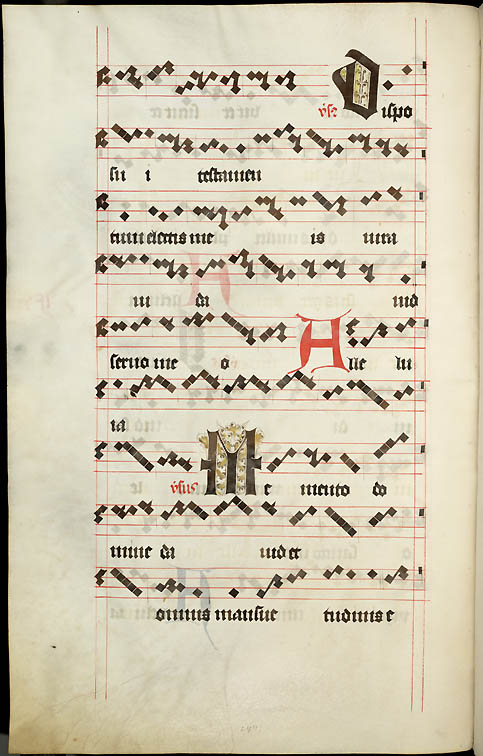 v̄sꝰ Dispo
sui i testamen
tum electis me is iura
ui da uid
seruo me o Alle lu
ia
v̄sus Me mento do
mine da uid et
omnis mansue tudinis e